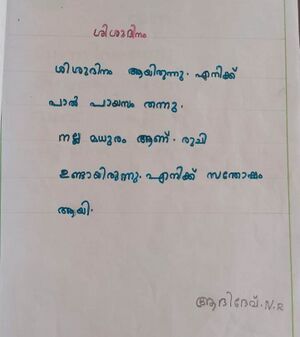 ശിശുദിനം
ശിശുദിനം ആയിരുന്നു. എനിക്ക്
പാൽ പായസം തന്നു.
നല്ല മധുരം ആണ്. രുചി
ഉണ്ടായിരുന്നു. എനിക്ക് സന്തോഷം
ആയി.
ആദിദേവ്.N.R